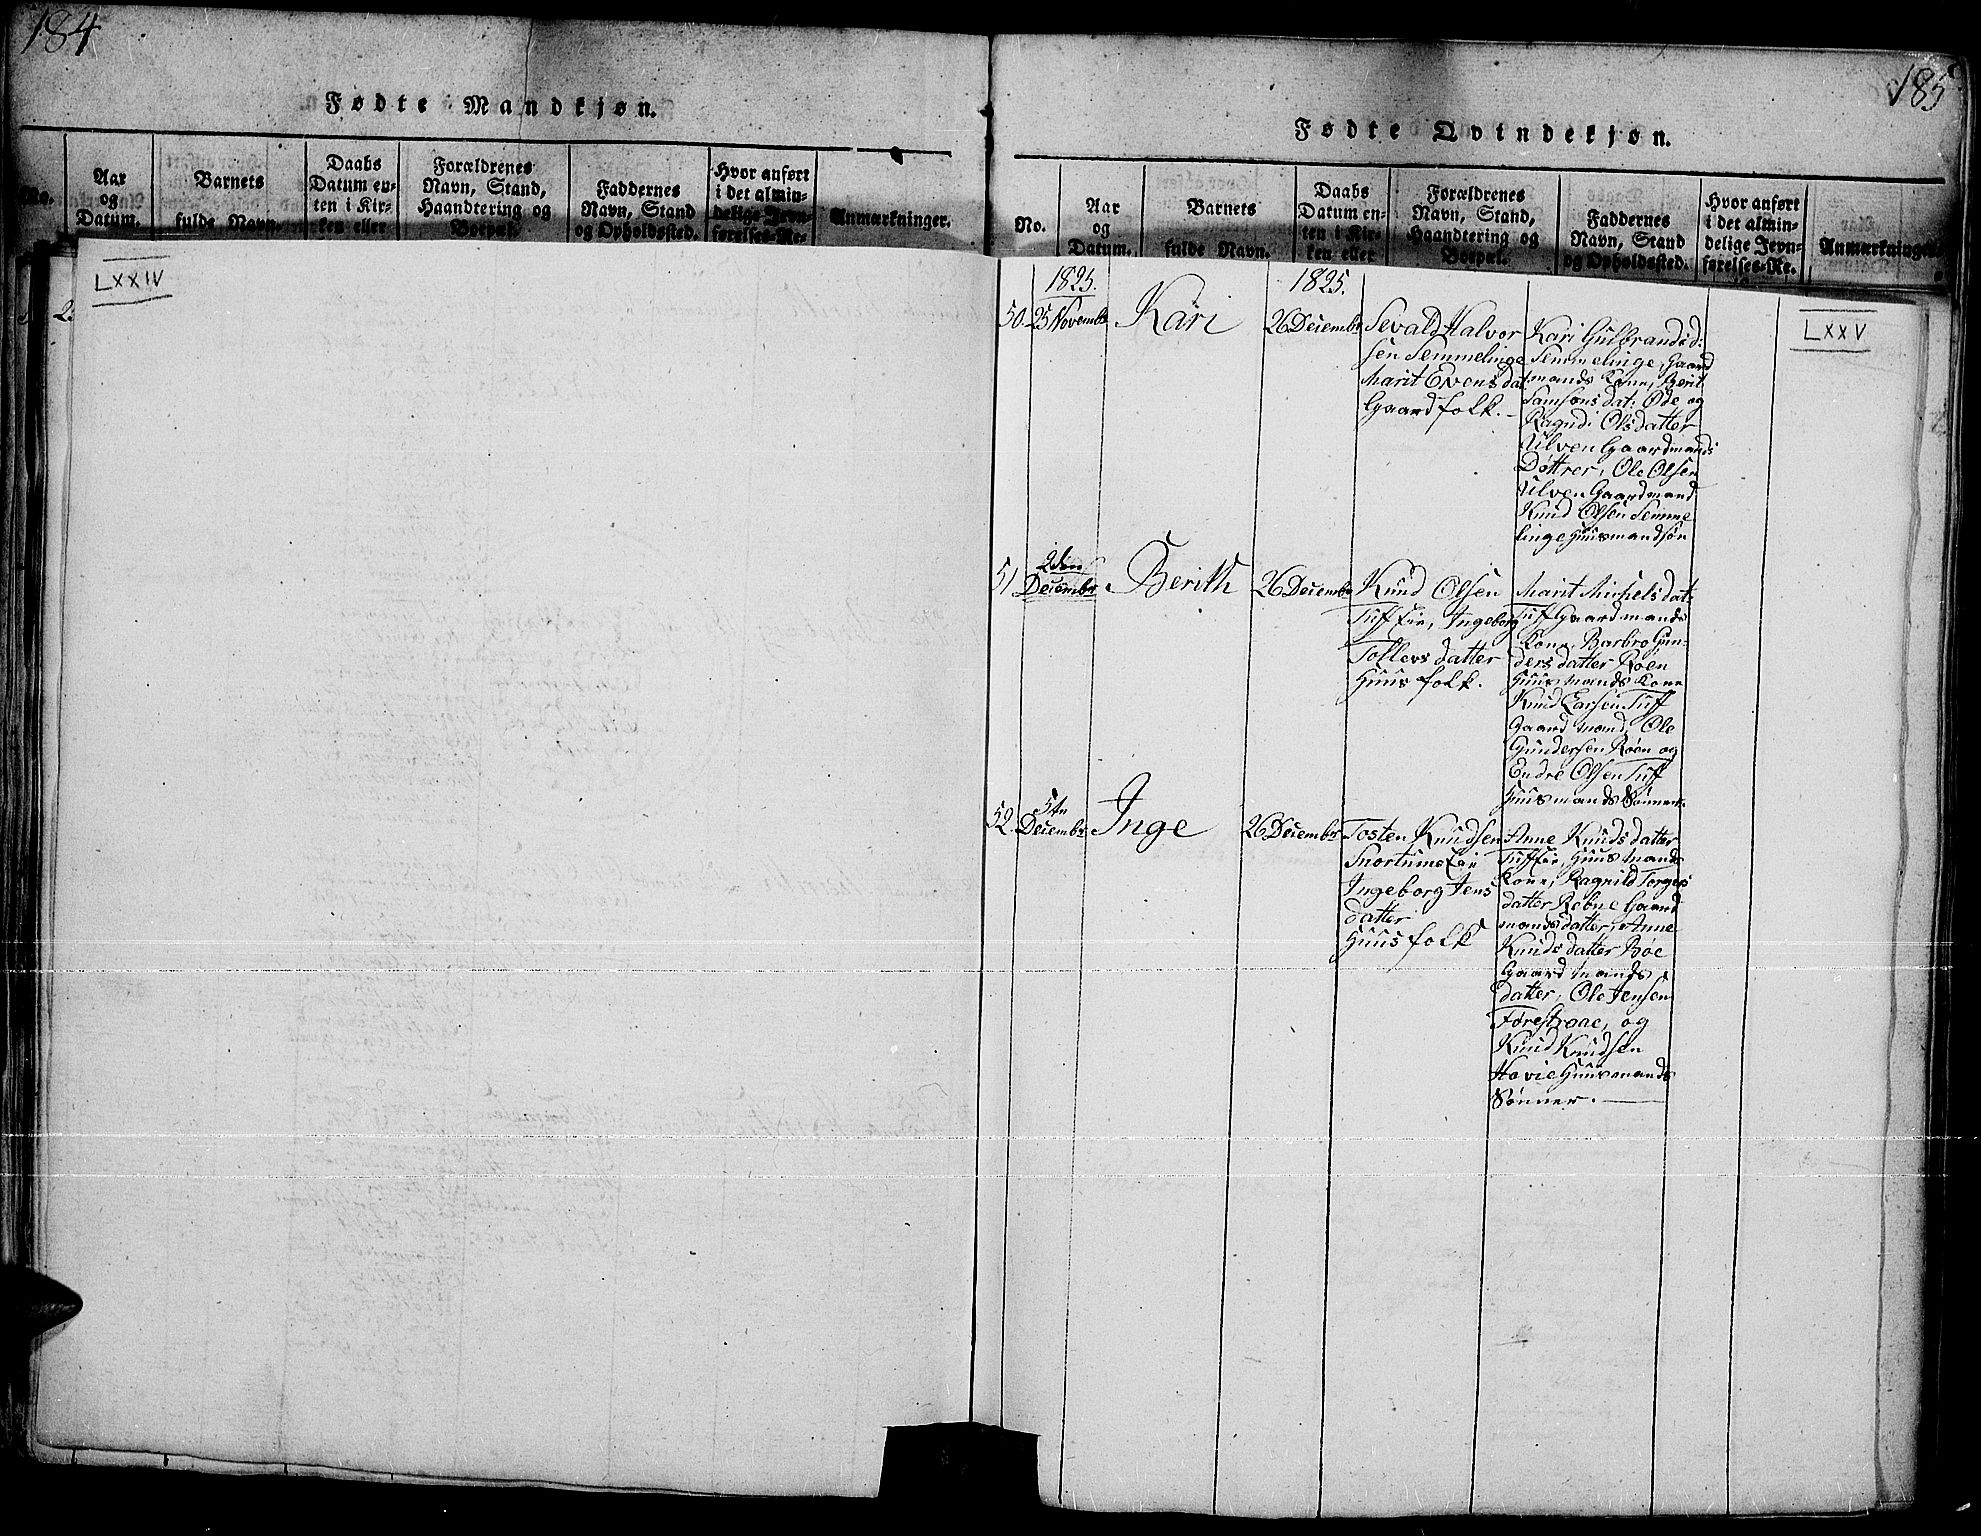 184
Fødte Mandkjøn.
No.
Aar
og
Datum.
Barnets
fulde Navn.
Daabs
Datum en-
ten i Kir-
ken eller
Forældrenes
Navn, Stand,
Haandtering og
Boepæl.
Faddernes
Navn, Stand
og Opholdssted.
Hvor anført
i det almin-
delige Jevn-
førelses-Re-
Anmærkninger.
LXXIV
2.
185
Fødte Qvindekjøn.
No.
Aar
og
Datum.
Barnets
fulde Navn.
Daabs
Datum en-
ten i Kir-
ken eller
Forældrenes
Navn, Stand,
Haandtering og
Boepæl.
Faddernes
Navn, Stand
og Opholdssted.
Hvor anført
i det almin-
delige Jevn-
førelses-Re.
Anmærkninger.
LXXV
1825.
1825.
50. 25 Novembr
Kari
26 Decembr
Sevald Halvor
sen Semmelinge
Marit Evensdat
Gaardfolk.
Kari Gulbrandsd:
Semmelinge, Gaard
mands Kone, Berit
Samsonsdat: Øde og
Ragnd: Olsdatter
Ulven Gaardmands
Døttrer, Ole Olsen
Ulven Gaardmand
Knud Olsen Semme
linge Huusmandsøn
51
2den
Decembr
Berith
26 Decembr
Knud Olsen
Tuff Eie, Ingeborg
Tollevsdatter
Huusfolk.
Marit Michelsdat:
Tuff Gaardmands
Kone, Barbro Gun-
dersdatter Røen
Huusmands Kone
Knud Larsen Tuff
Gaardmand, Ole
Gundersen Røen og
Endre Olsen Tuff
Huusmands Sønner.
52.
5te
Decembr
Inge
26 Decembr
Tosten Knudsen
Snortums Eie
Ingeborg Jens
datter
Huusfolk
Anne Knudsdatter
Tuff Eie, Huusmands
Kone, Ragnild Torgers
datter Rebne Gaard
mandsdatter, Anne
Knudsdatter Bøe
Gaardmands
datter, Ole Jensen
Førestraae, og
Knud Knudsen
Hovie Huusmands
Sønner.